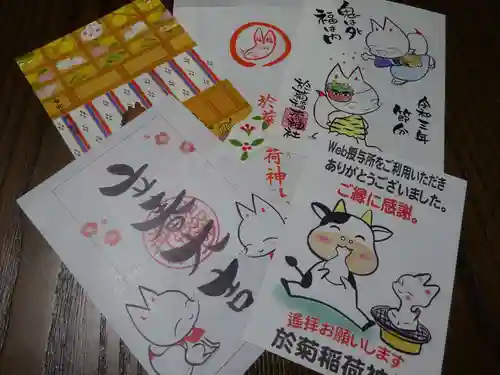 鬼は外
福は内
於菊稲荷神社
令和三年
節分
於菊
荷神
立春大吉
Web授与所をご利用いただき
ありがとうございました。
ご縁に感謝。
遙拝お願いします
於菊稲荷神